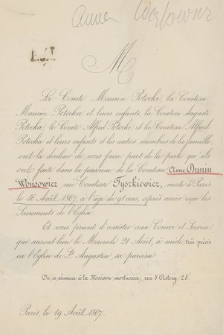 Anna Wąsowicz
M
Le Comte Maurice Potocki, la Comtesse
Maurice Potocka et leurs enfants, la Comtesse Auguste
Potocka, le Comte Alfred Potocki et la Comtesse Alfred
Potocka et leurs enfants et les autres membres de la famille
ont la douleur de vous faire part de la perte qu'ils
ont faite dans la personne de la Comtesse Anne Dunin
Wąsowicz née Comtesse Tyszkiewicz, morte à Paris
le Août 1867, à l'âge de ans, après avoir reçu les
Sacrements de l'Église
Et vous prient d'assister aux Convoi et Service
qui auront lieu le Mercredi 21 Août, à midi très précis
en l'Église de St Augustin sa paroisse
On se réunira à la Maison mortuaire, rue d'Astorg 28.
Paris, le 19 Août 1867.